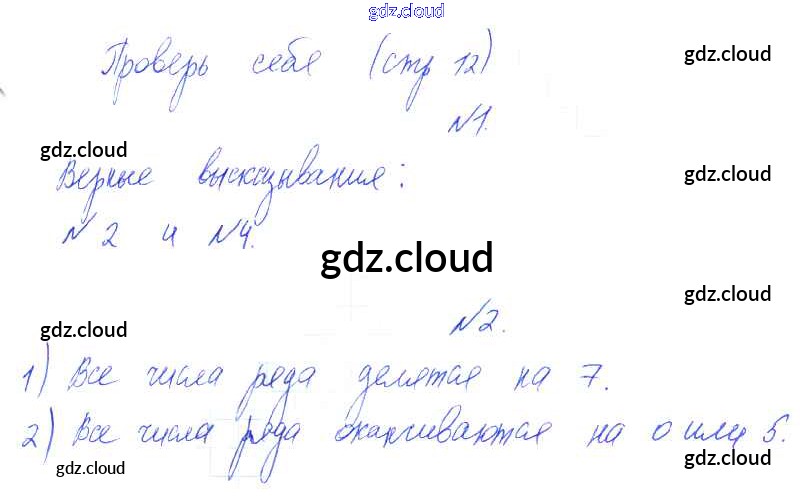 gdz.cloud
Проверь себя (стр 12)
gdz.cloud
№1.
gdz.cloud
Верные высказывания:
gdz.cloud
№2 и №4.
gdz.cloud
gdz.cloud
№2.
gdz.cloud
1) Все числа ряда делятся на 7.
2) Все числа ряда оканчиваются на 0 или 5.
gdz.cloud
gdz.cloud